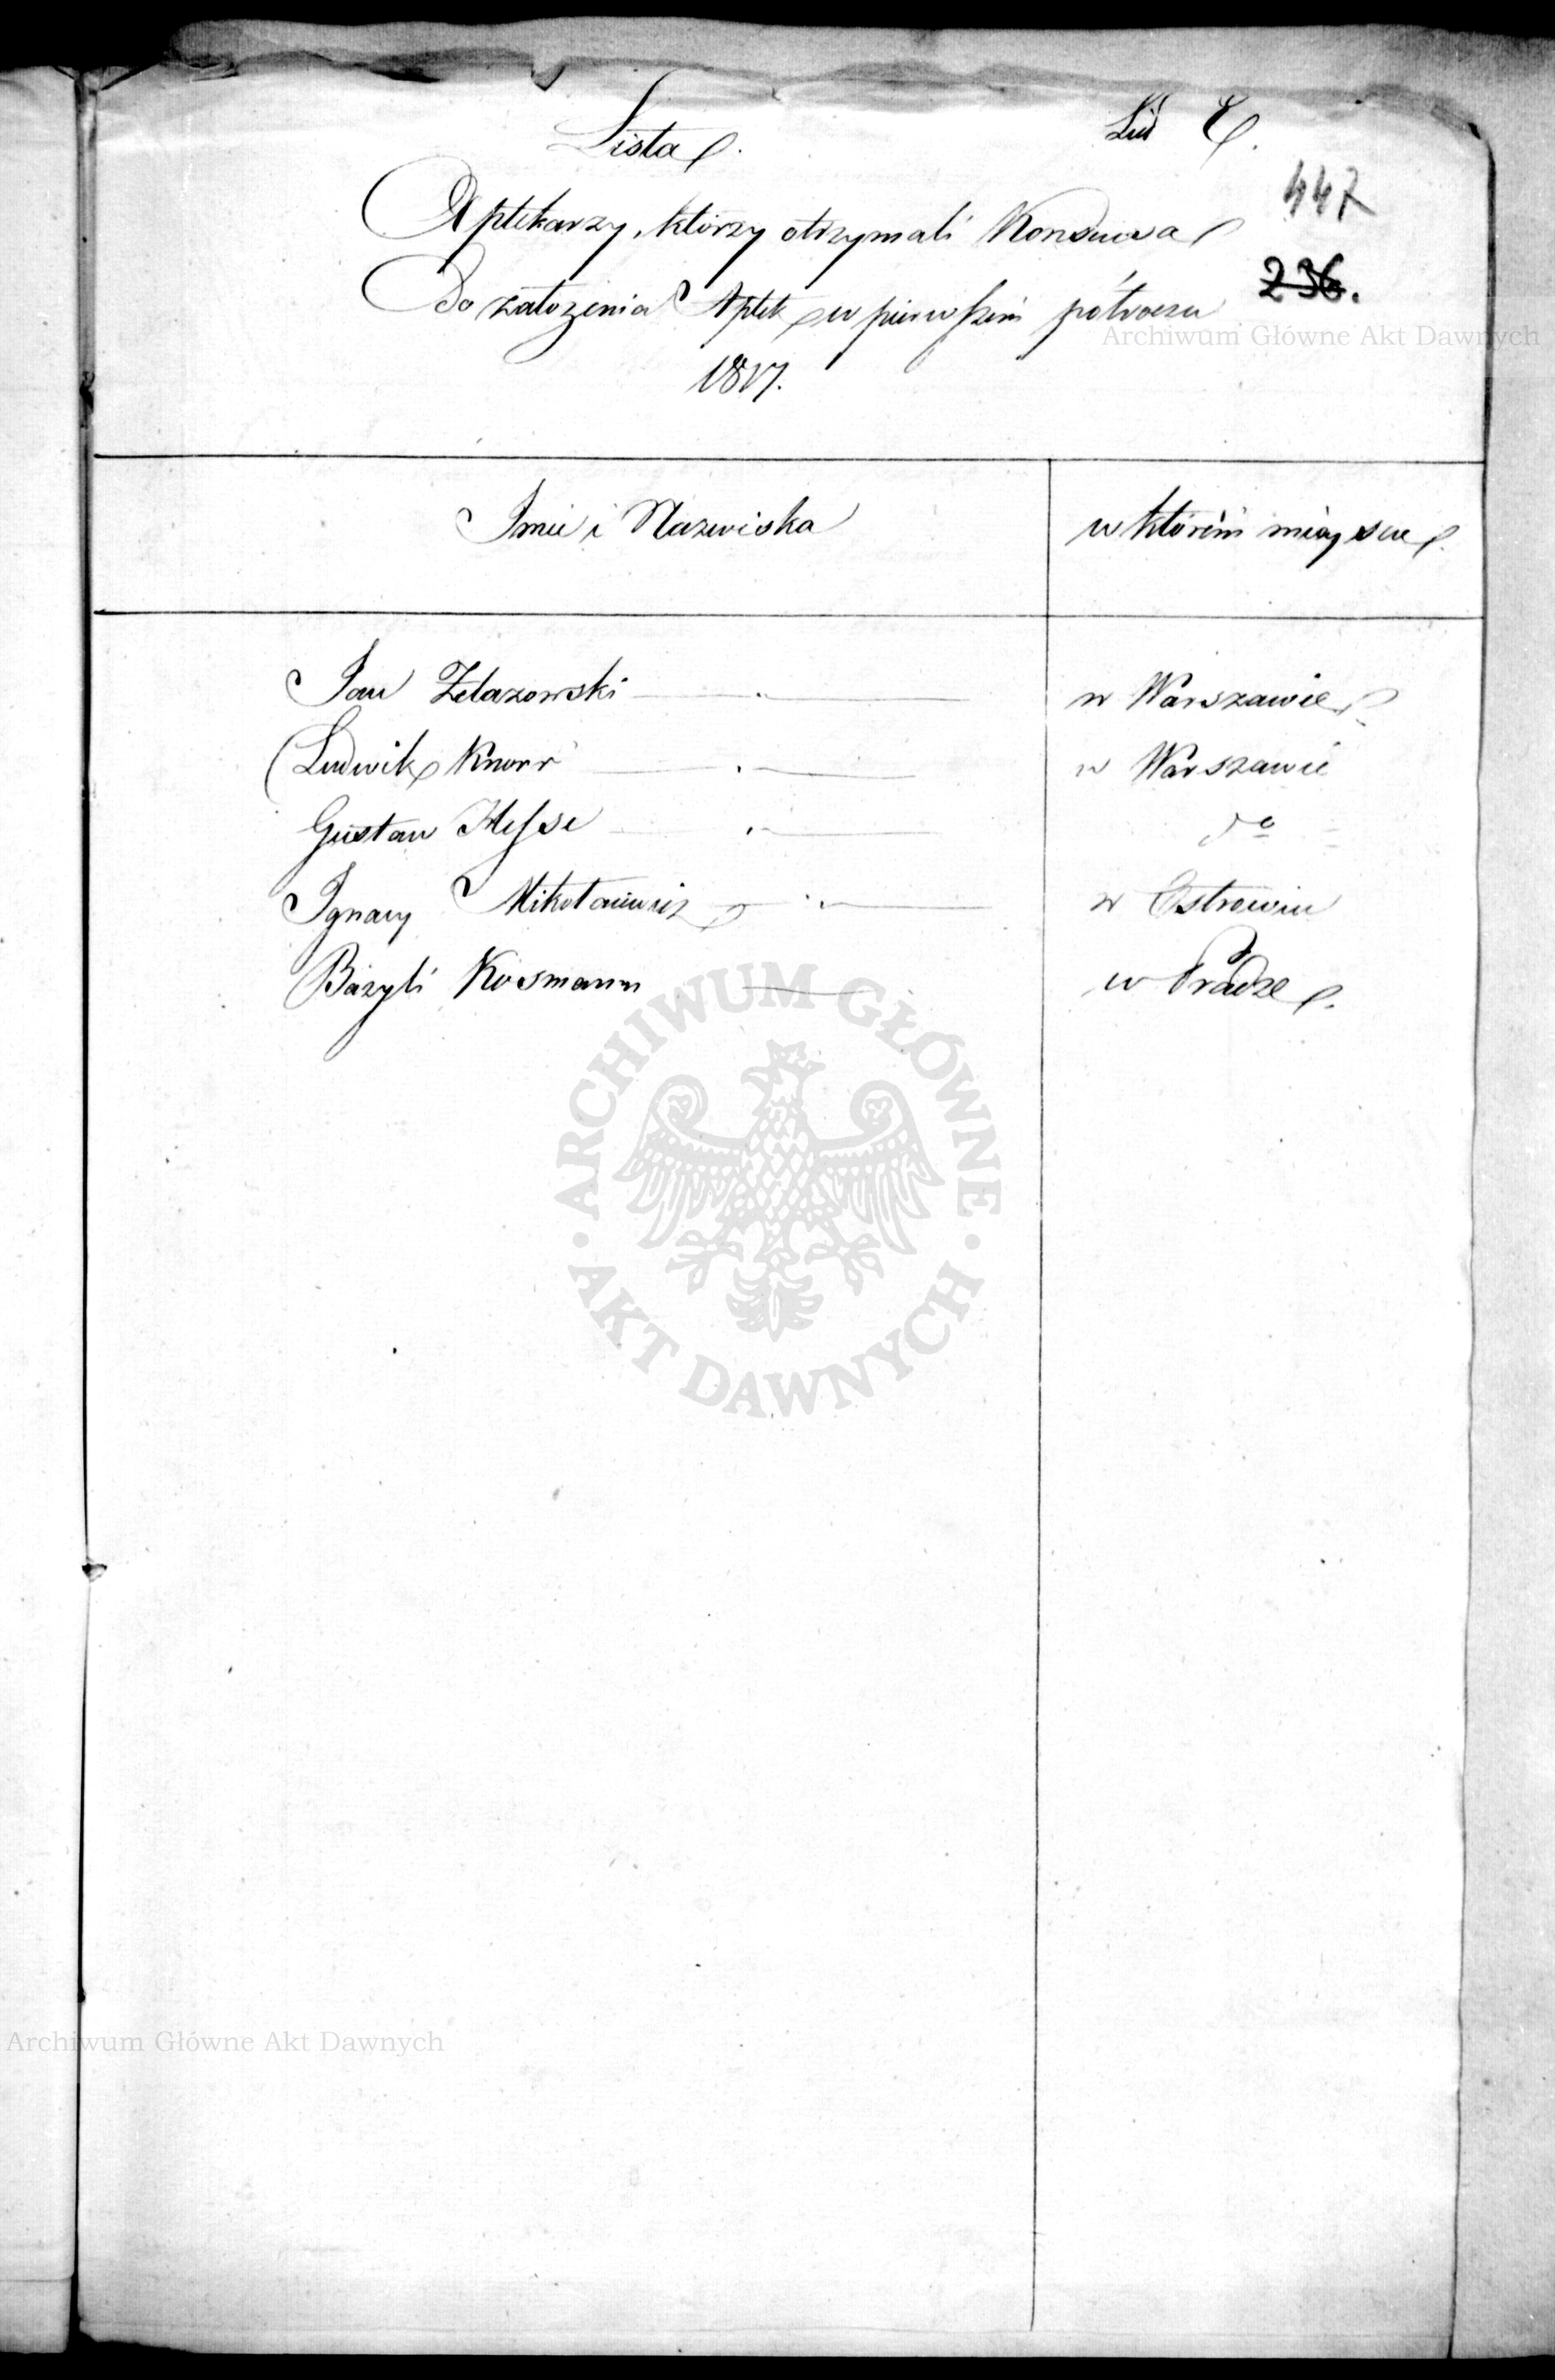 Lista
Lit C.
447
Aptekarzy, którzy otrzymali Konsensa
236.
Do załozenia Aptek w pierwszém półroczu
Archiwum Główne Akt Dawnych
1817.
Imie i Nazwiska
w którém mieyscu.
Jan Zelazowski
w Warszawie
Ludwik Knorr
w Warszawie
Gustaw Hesse
do
Ignacy Mikołaiewicz
w Ostrowiu
Bazyli Kosmann
w Pradze.
ARCHIWUM GŁÓWNE
AKT DAWNYCH
Archiwum Główne Akt Dawnych